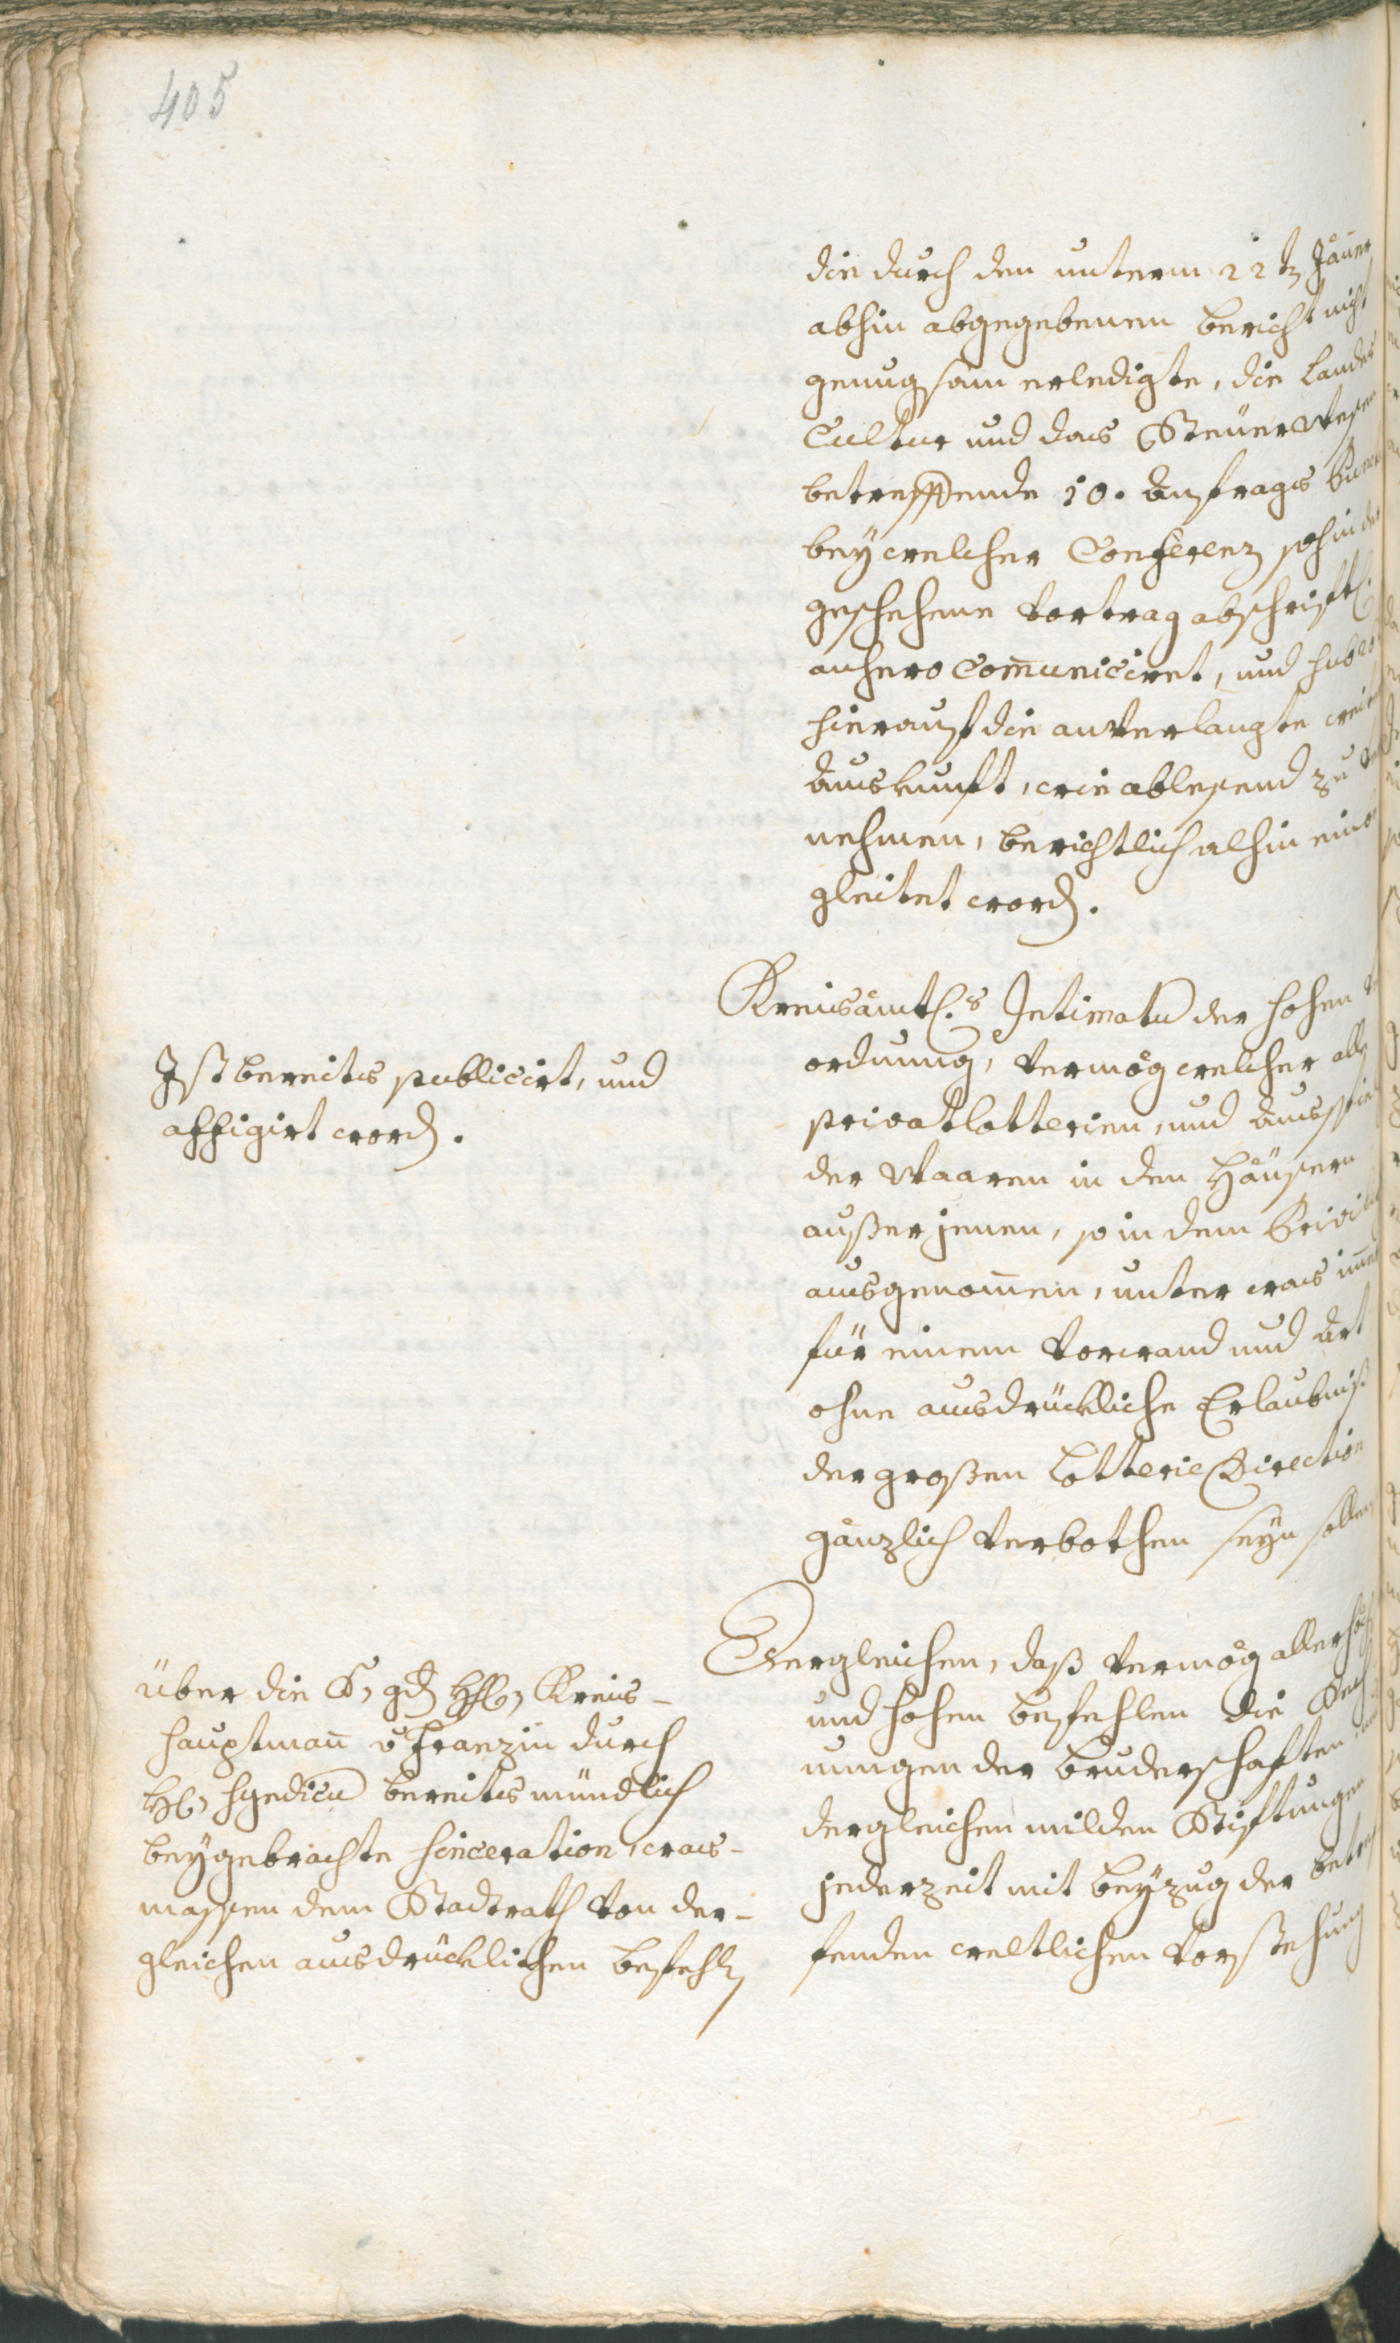 405
die durch den unterm 22tn Jäner
abhin abgegebenen bericht nicht
genugsam erledigte, die Landes
Cultur und das Steüerwesen
betreffende 10. Anfrags
beÿ welcher Conferenz sohin der
geschehene Vortrag abschriftl.
anhero Com̄uniciret, und
hierauf die anverlangte
Auskunft, wie ablesend zu
nehmen, berichtlich alhin einbe
gleitet word.
Kreisämtl.s Intimatū der hohen
ordnung, vermög welcher alle
privatlotterien, und Ausspiel
der Waaren in den Häüsern
außer jenen, so in dem Privile
ausgenom̄en, unter was im̄er
für einem Vorwand und Art
ohne ausdrückliche Erlaubniß
der großen Lotterie Direction
gänzlich verbothen seyn sollen
Dergleichen, daß vermög allerhöch
und hohen befehlen die Rech
nungen der bruderschaften und
dergleichen milden Stiftungen
jederzeit mit beÿzug der betref
fenden weltlichen Vorstehung
Ist bereits publicirt, und
affigirt word.
über die S. gd. H. Kreis-
hauptman̄ v Franzin durch
H. Syndicū bereits mündlich
beÿgebrachte sinceration, was-
massen dem Stadtrath von der-
gleichen ausdrücklichen befehl